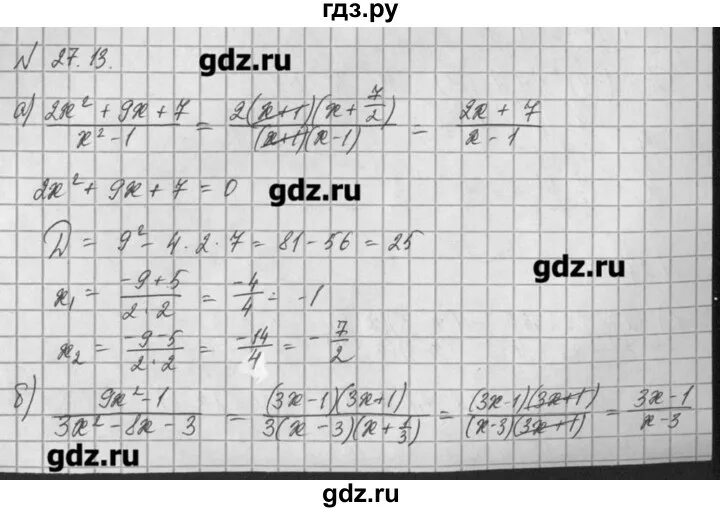 гдз.ру
N 27.13.
gdz.ru
а) (2x² + 9x + 7)/(x² - 1) = 2(x+1)(x + 7/2)/(x+1)(x-1) = (2x + 7)/(x - 1)
2x² + 9x + 7 = 0
gdz.ru
D = 9² - 4·2·7 = 81 - 56 = 25
gdz.ru
x₁ = (-9+5)/(2·2) = -4/4 = -1
x₂ = (-9-5)/(2·2) = -14/4 = -7/2
б) (9x² - 1)/(3x² - 8x - 3) = (3x-1)(3x+1)/3(x-3)(x+1/3) = (3x-1)(3x+1)/(x-3)(3x+1) = (3x-1)/(x-3)
gdz.ru
gdz.ru